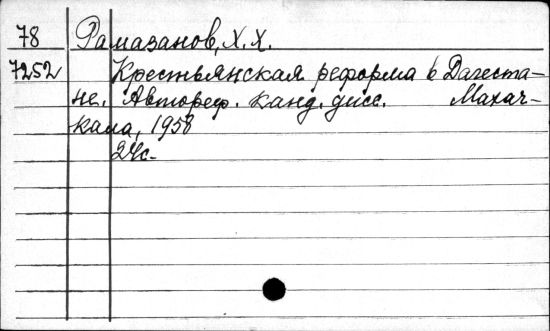 78 Рамазанов, Х.Х.
7252 Крестьянская реформа в Дагеста-
не. Автореф. канд. дисс. Махач-
кала, 1958
24с.